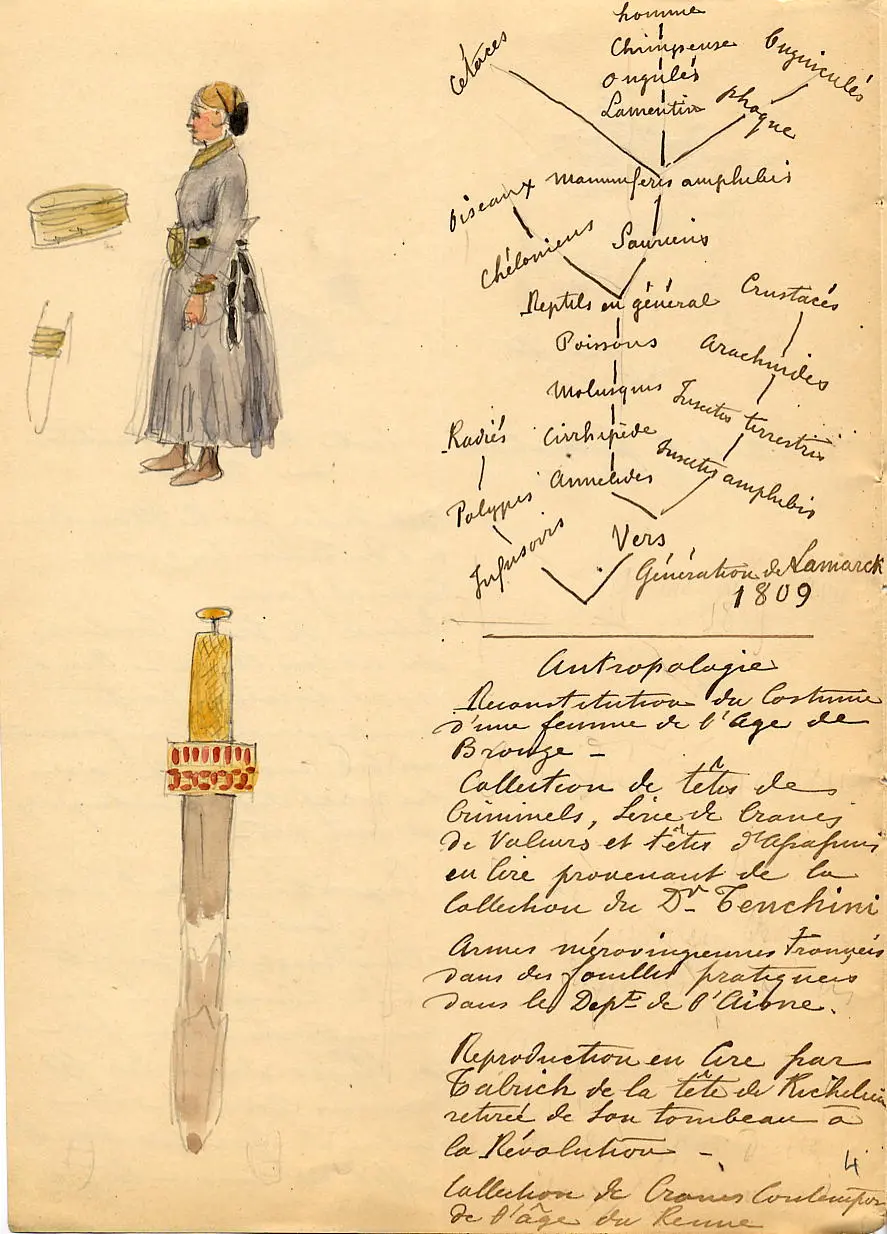 homme
Cétacés
Chimpense
Onguiculés
ongulés
Lamentin
Phoque
Mammiferes amphibis
Oiseaux
Chéloniens
Sauriens
Reptils en général
Crustacés
Poissons
Arachnides
Molusques
Insectes terrestris
Radiés
Cirrhipède
Insectes amphibis
Annelides
Polypes
Infusoirs
Vers
Génération de Lamarck
1809
Antropologie
Reconstitution du Costume
d'une femme de l'Age de
Bronze -
Collection de têtes de
Criminels, Série de Cranes
de Voleurs et têtes d'assassins
en Cire provenant de la
Collection du Dr Tenchini
Armes mérovingiennes Trouvées
dans des fouilles pratiquées
dans le Dept de l'Aisne.
Reproduction en Cire par
Talrich de la tête de Richelieu
retirée de son tombeau à
la Révolution -
4
Collection de Cranes Contempor
de l'âge du Renne